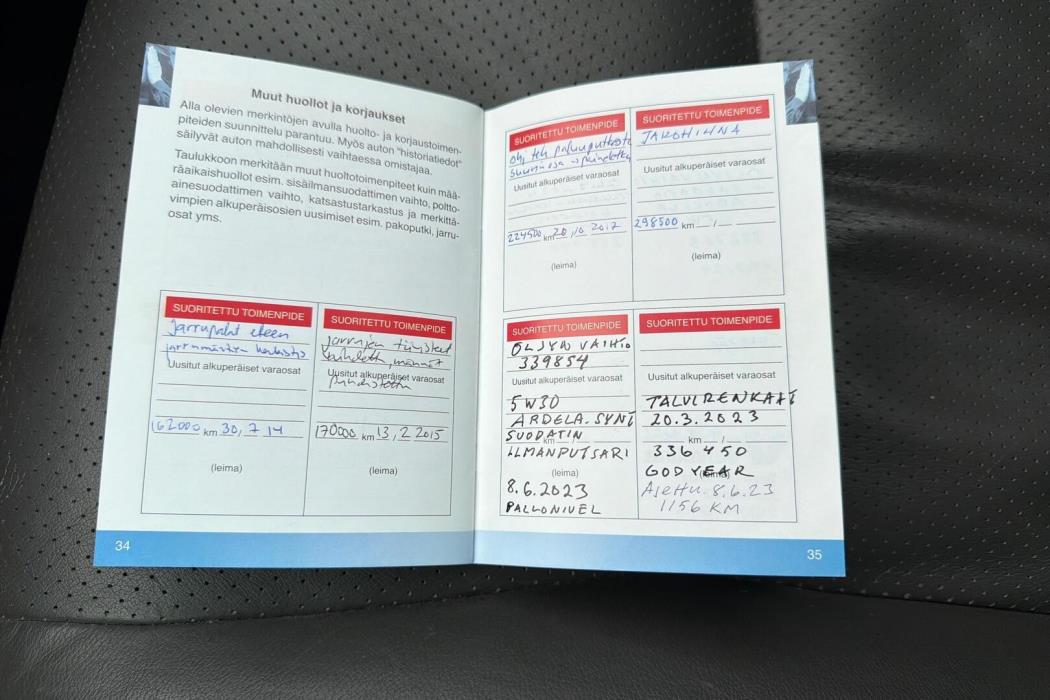 Muut huollot ja korjaukset
Alla olevien merkintöjen avulla huolto- ja korjaustoimen-
piteiden suunnittelu parantuu. Myös auton "historiatiedot"
säilyvät auton mahdollisesti vaihtaessa omistajaa.
Taulukkoon merkitään muut huoltotoimenpiteet kuin mää-
räaikaishuollot esim. sisäilmansuodattimen vaihto, poltto-
ainesuodattimen vaihto, katsastustarkastus ja merkittä-
vimpien alkuperäisosien uusimiset esim. pakoputki, jarru-
osat yms.
SUORITETTU TOIMENPIDE
Jarrupalat eteen
Uusitut alkuperäiset varaosat
162000 km 30, 7 14
(leima)
SUORITETTU TOIMENPIDE
jarrujen tiivisteet
vaihdettu, männät
Uusitut alkuperäiset varaosat
puhdistettu
170000 km 13, 2 2015
(leima)
34
SUORITETTU TOIMENPIDE
Uusitut alkuperäiset varaosat
224500 km 20, 10 2017
(leima)
SUORITETTU TOIMENPIDE
JAKOHIHNA
Uusitut alkuperäiset varaosat
298500 km /
(leima)
SUORITETTU TOIMENPIDE
ÖLJYN VAIHTO
339854
Uusitut alkuperäiset varaosat
5W30
ARDELA.SYNT
SUODATIN
km /
ILMANPUTSARI
(leima)
8.6.2023
PALLONIVEL
SUORITETTU TOIMENPIDE
Uusitut alkuperäiset varaosat
TALVIRENKAAT
20.3.2023
km /
336450
GODYEAR
(leima)
Asettu. 8.6.23
1156 KM
35